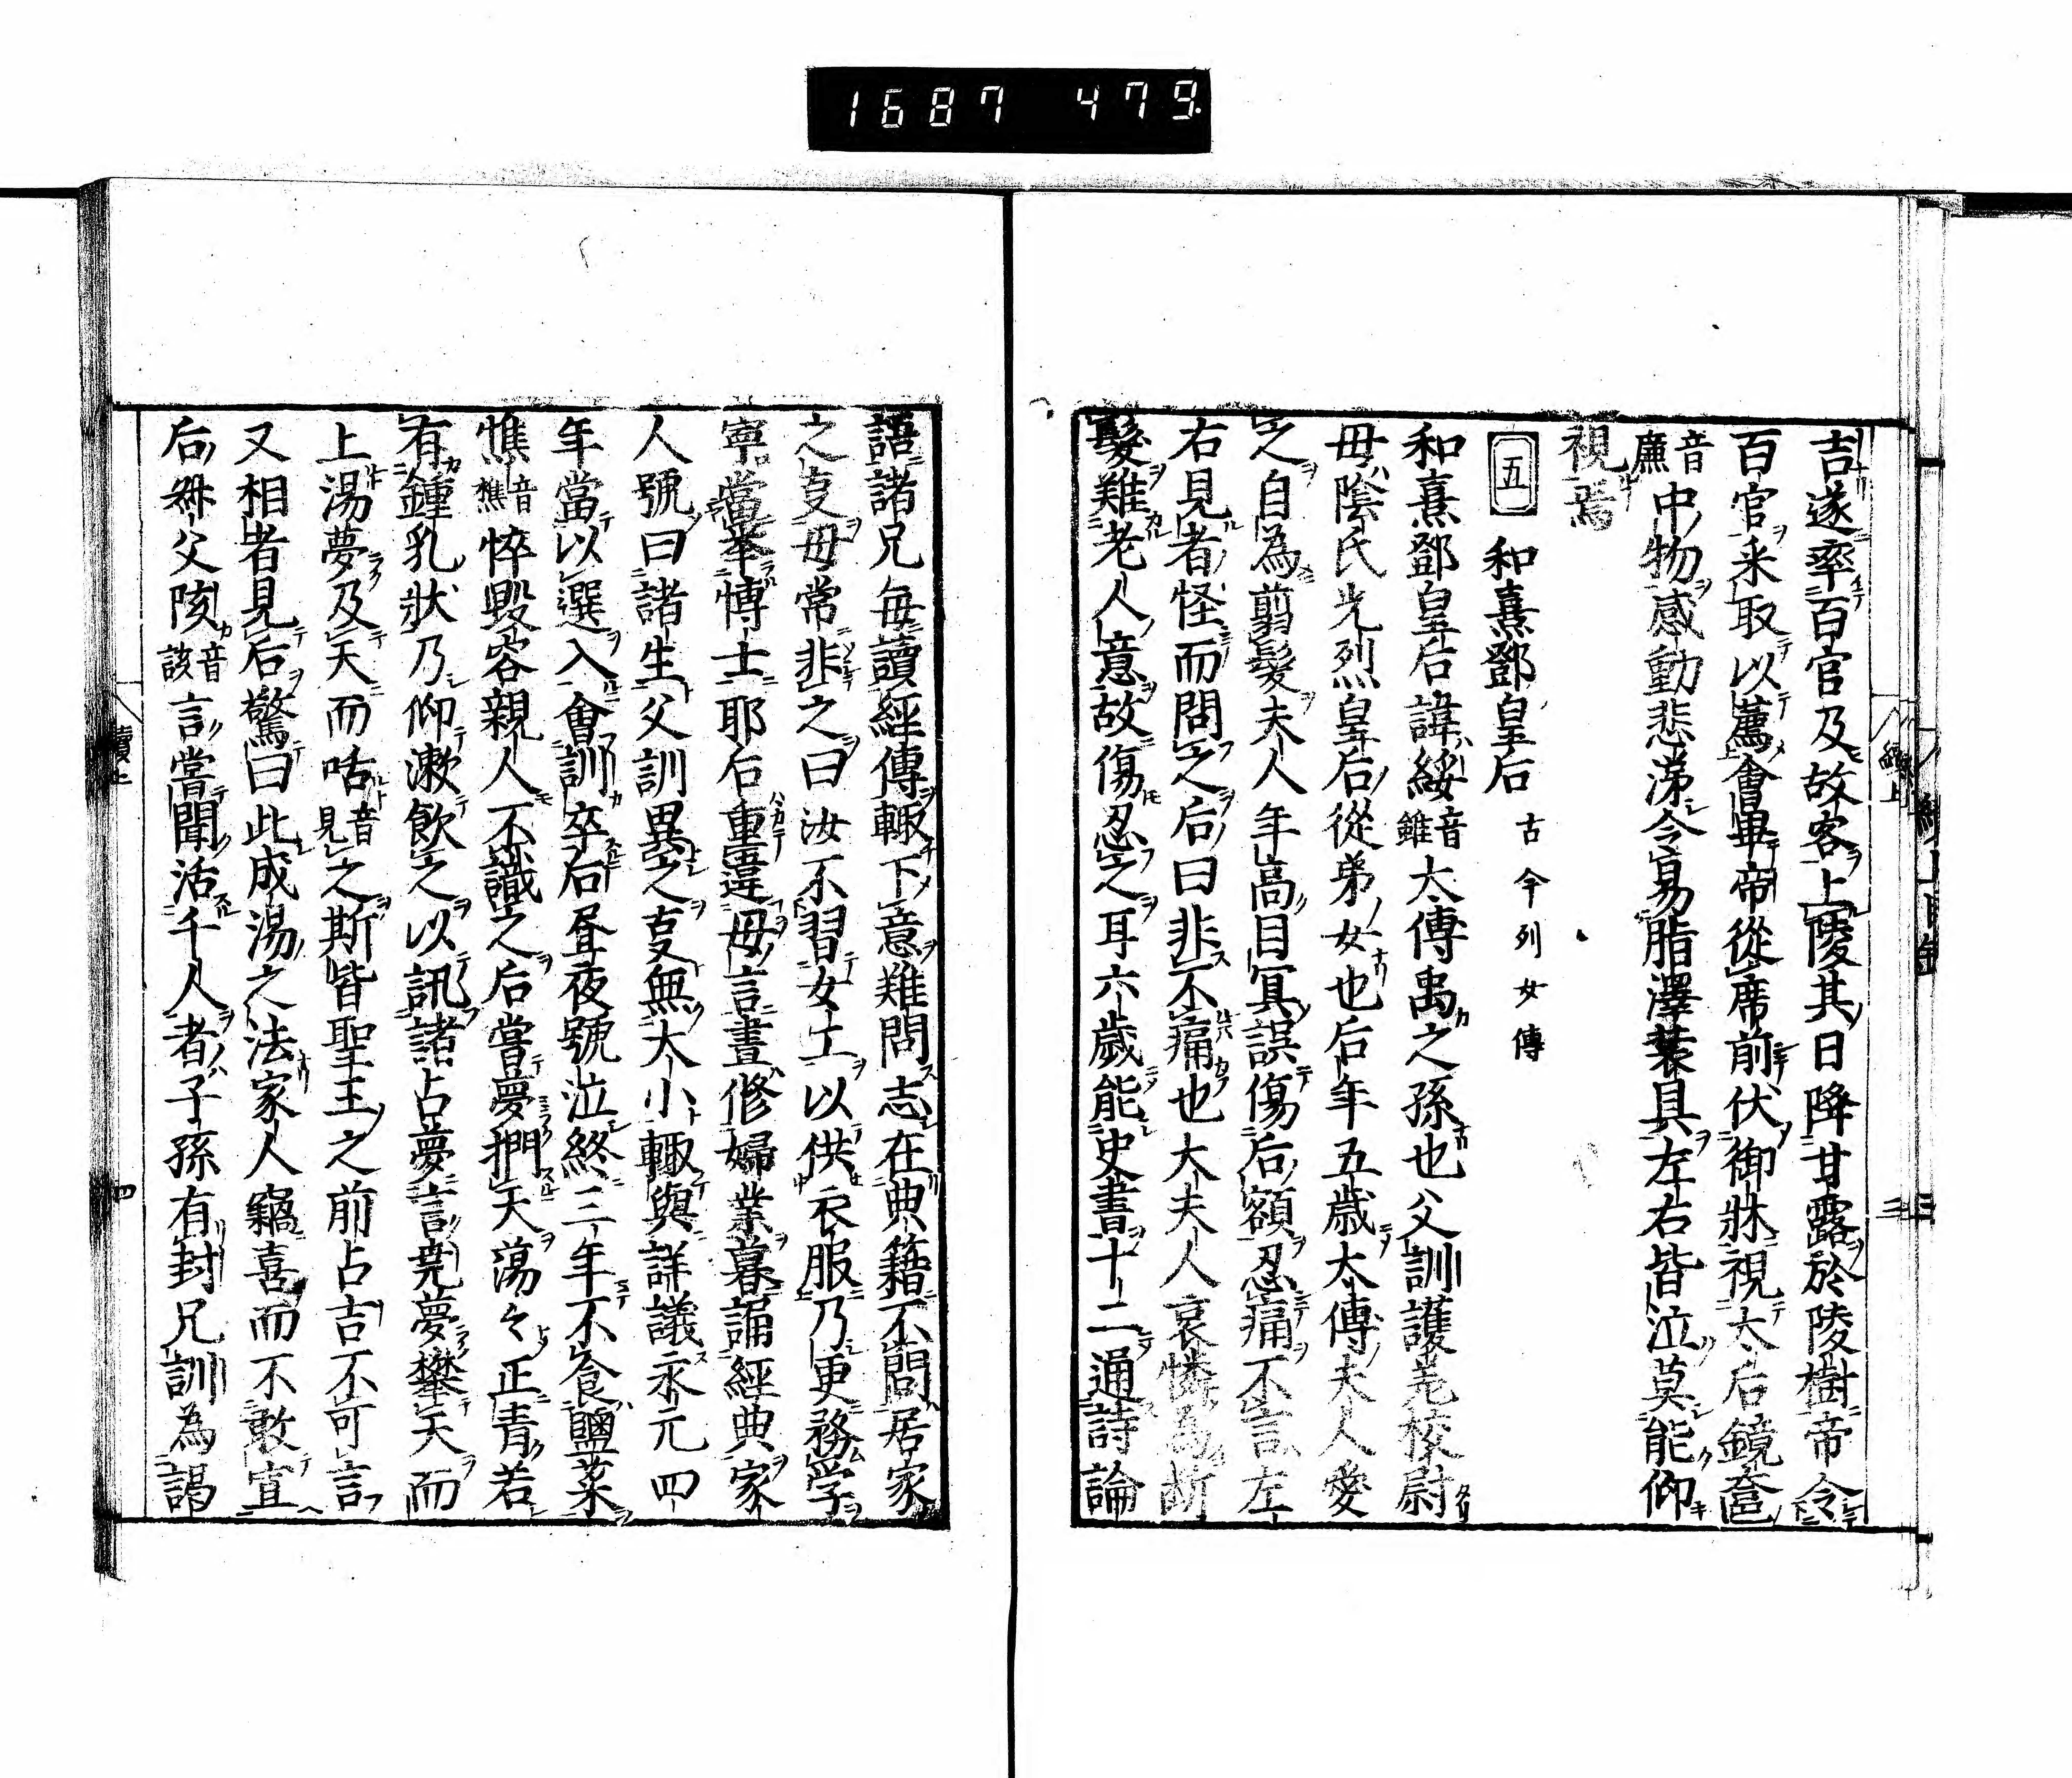 1687 479
吉遂率百官及故客上陵其日降甘露於陵樹帝令
百官采取以薦會畢帝從席前伏御牀視太后鏡奩
音廉中物感動悲涕令易脂澤裝具左右皆泣莫能仰
視焉
五 和熹鄧皇后 古今列女傳
和熹鄧皇后諱綏音雖太傅禹之孫也父訓護羌校尉
母陰氏光烈皇后從弟女也后年五歲太傅夫人愛
之自為剪髮夫人年高目冥誤傷后額忍痛不言左
右見者怪而問之后曰非不痛也大夫人哀憐為斷
髮難老人意故傷忍之耳六歲能史書十二通詩論
語諸兄每讀經傳輙下意難問志在典籍不問居家
之㕝母常非之曰汝不習女工以供衣服乃更務学
寧當举博士耶后重違母言晝修婦業暮誦經典家
人號曰諸生父訓異之㕝無大小輙與詳議永元四
年當以選入會訓卒后昼夜號泣終三年不食鹽菜
憔音樵悴毀容親人不識之后嘗夢捫天蕩々正青若
有鍾乳狀乃仰漱飲之以訊諸占夢言堯夢攀天而
上湯夢及天而咶音見之斯皆聖王之前占吉不可言
又相者見后驚曰此成湯之法家人竊喜而不敢宣
后叔父陔音該言嘗聞活千人者子孫有封兄訓為謁
續上
三
續上
四